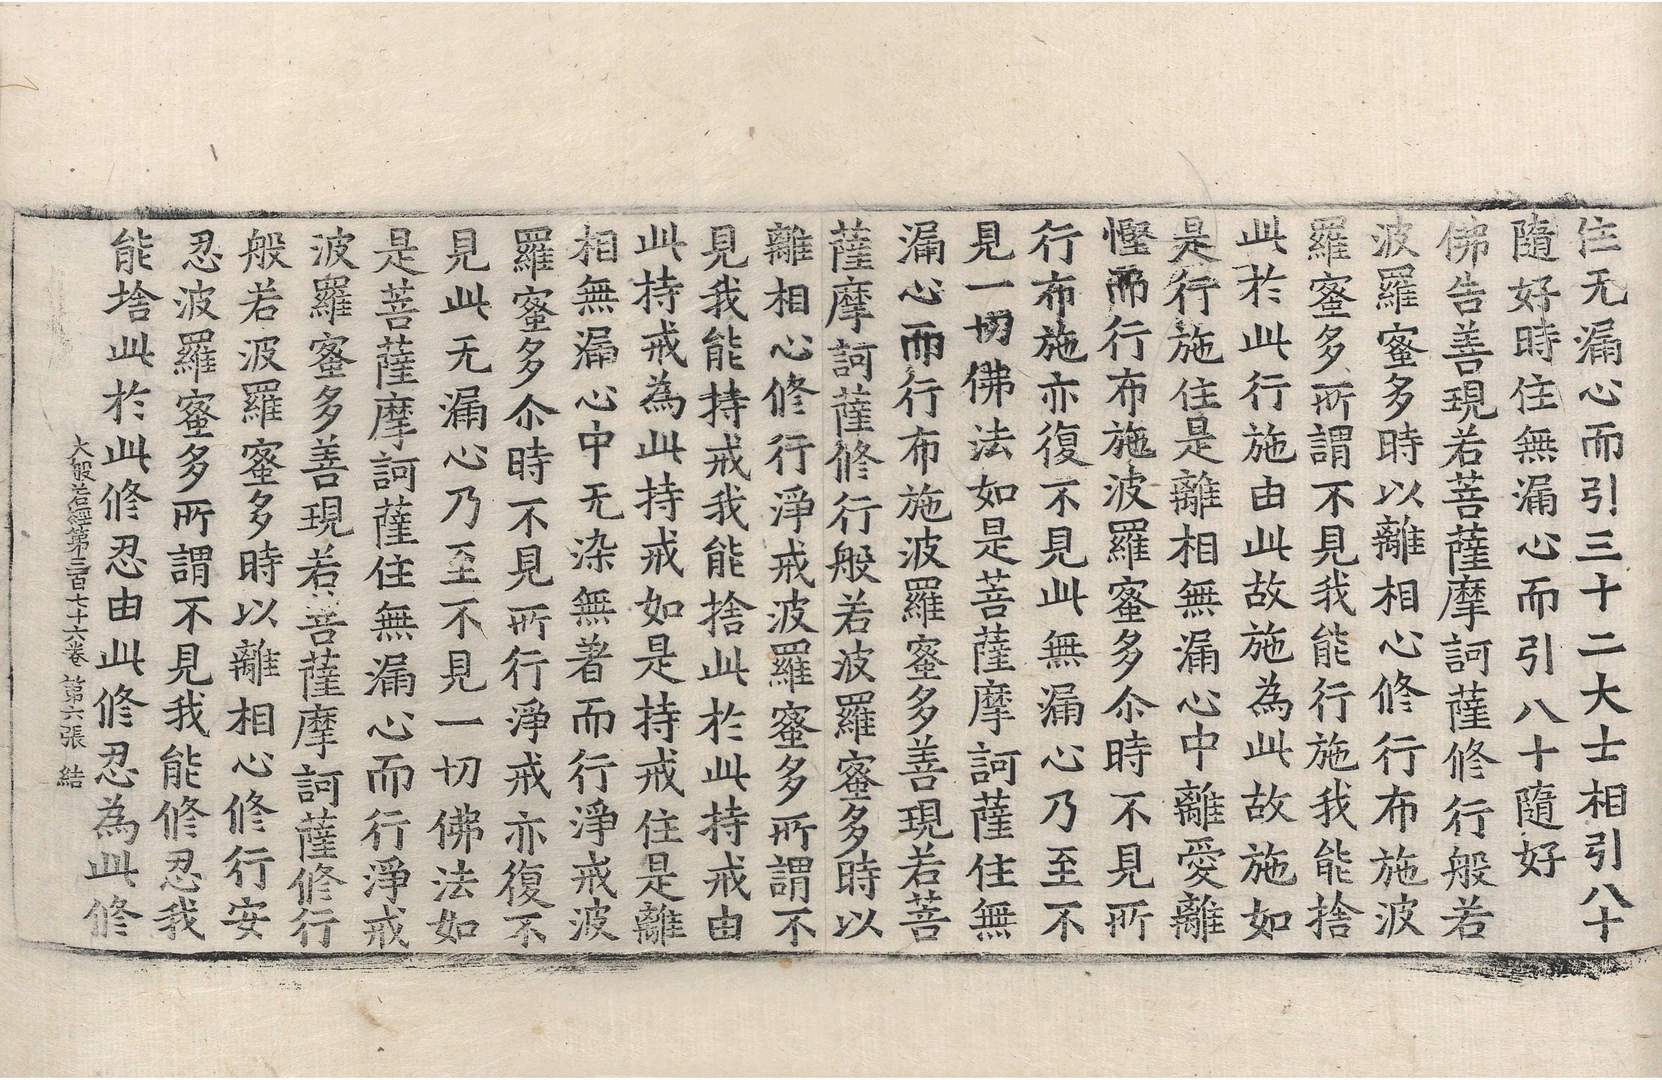 住无漏心而引三十二大士相引八十
隨好時住無漏心而引八十隨好
佛告善現若菩薩摩訶薩修行般若
波羅蜜多時以離相心修行布施波
羅蜜多所謂不見我能行施我能捨
此於此行施由此故施為此故施如
是行施住是離相無漏心中離愛離
慳而行布施波羅蜜多尒時不見所
行布施亦復不見此無漏心乃至不
見一切佛法如是菩薩摩訶薩住無
漏心而行布施波羅蜜多善現若菩
薩摩訶薩修行般若波羅蜜多時以
離相心修行淨戒波羅蜜多所謂不
見我能持戒我能捨此於此持戒由
此持戒為此持戒如是持戒住是離
相無漏心中无染無著而行淨戒波
羅蜜多尒時不見所行淨戒亦復不
見此无漏心乃至不見一切佛法如
是菩薩摩訶薩住無漏心而行淨戒
波羅蜜多善現若菩薩摩訶薩修行
般若波羅蜜多時以離相心修行安
忍波羅蜜多所謂不見我能修忍我
能捨此於此修忍由此修忍為此修
大般若經第三百七十六卷 第六張 結